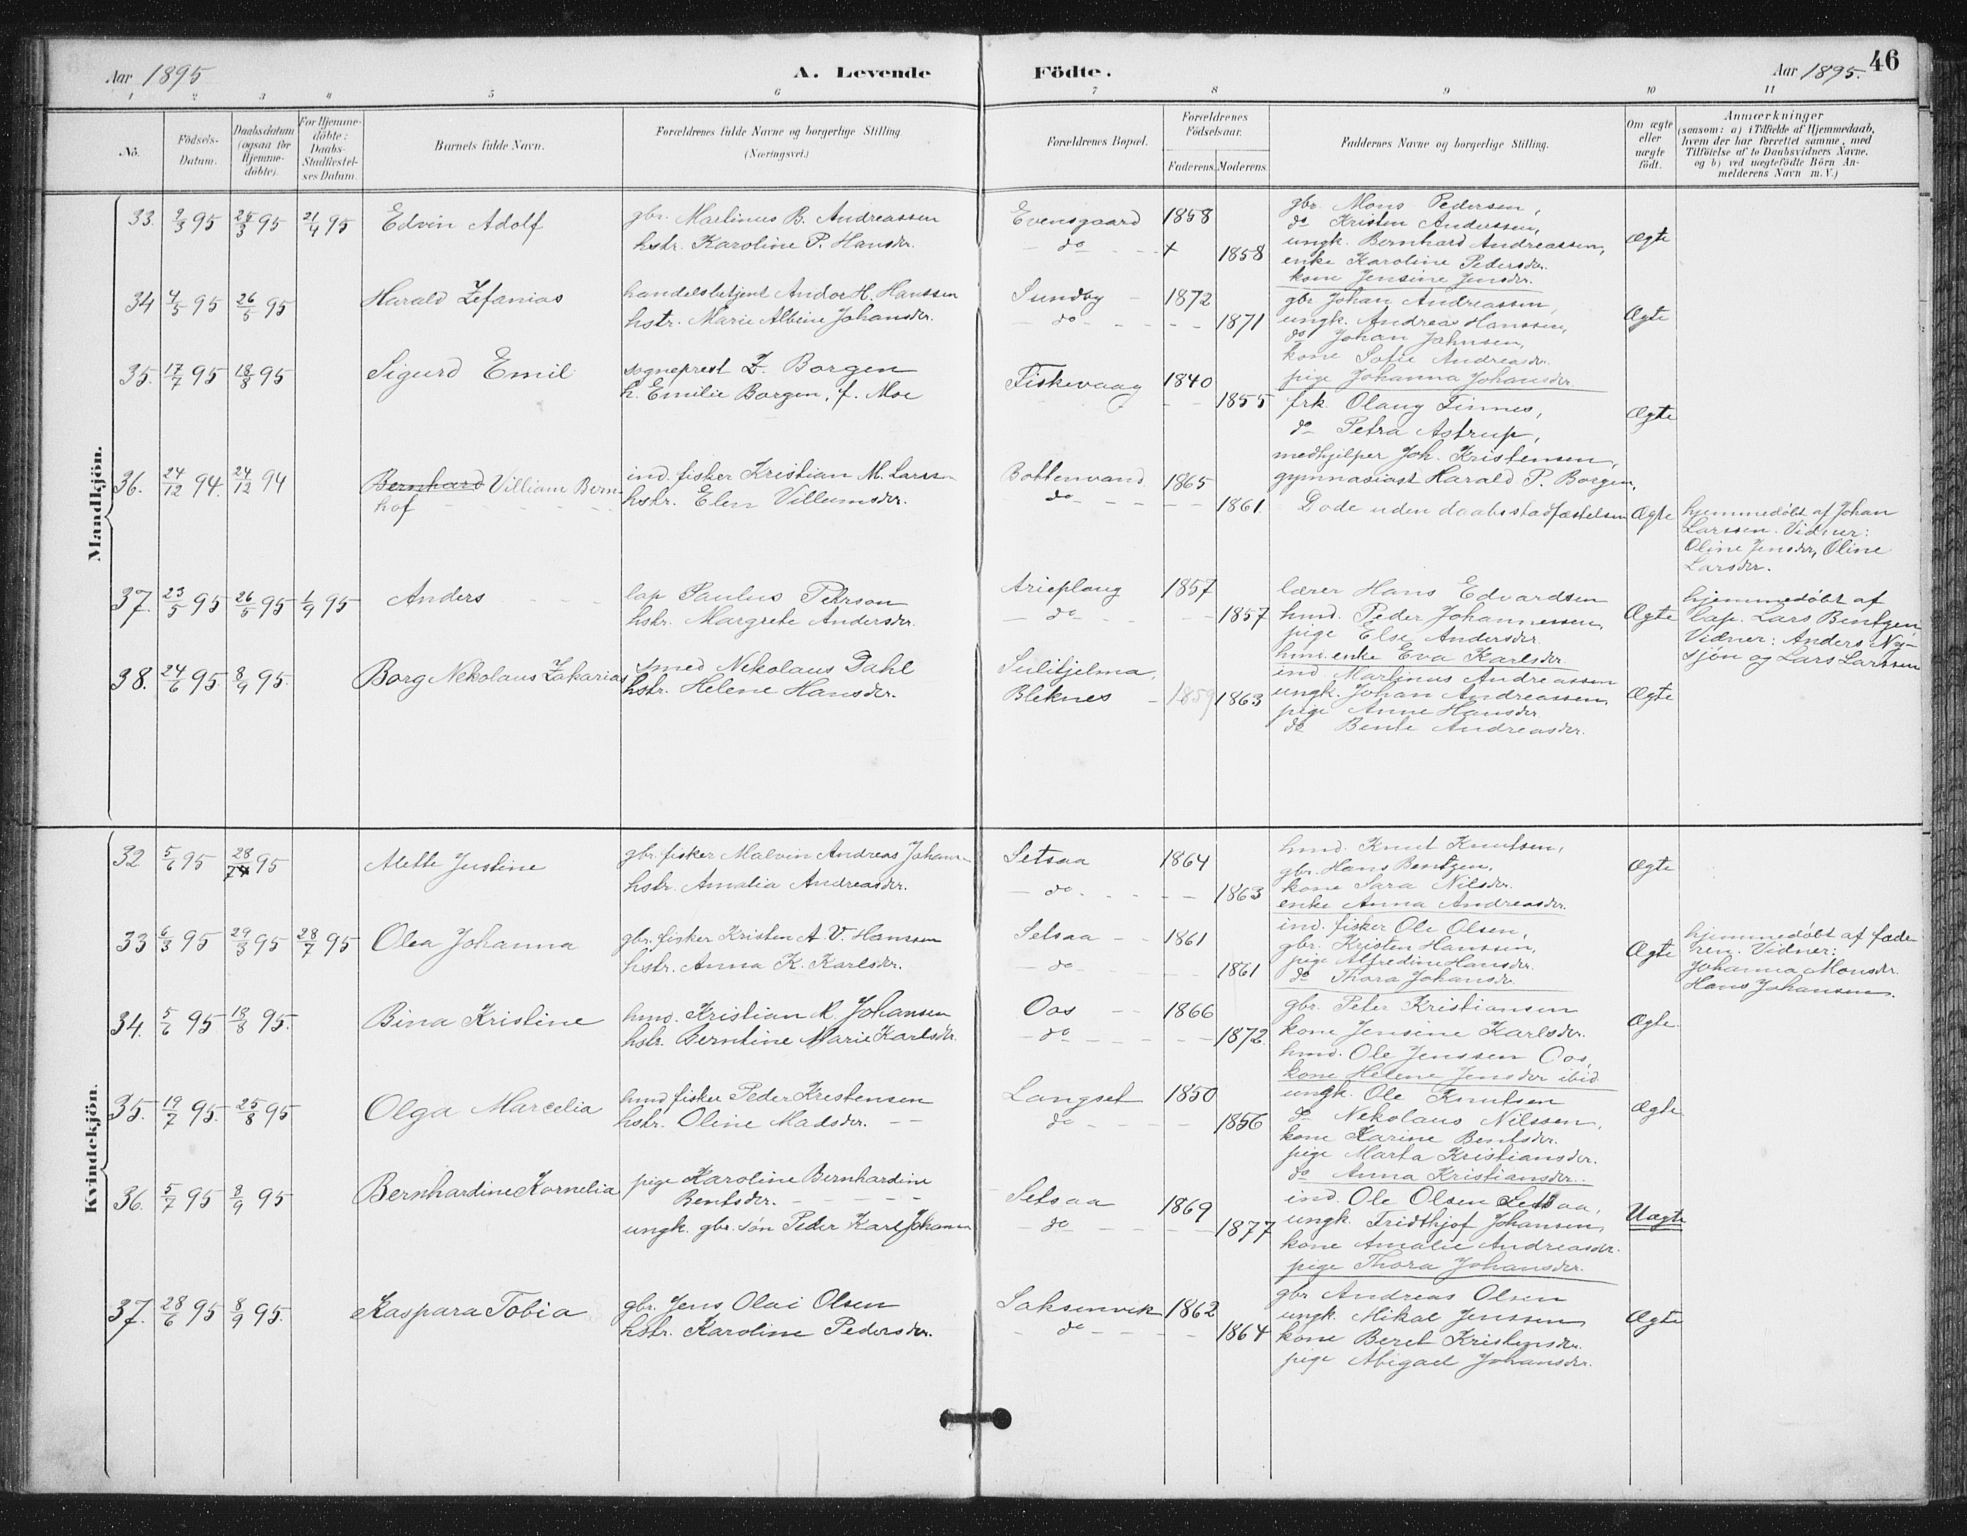 Aar 1895
A. Levende Födte.
Aar 1895.
46
1 2 3 4 5 6 7 8 9 10 11
No.
Födsels-Datum.
Daabsdatum (ogsaa for Hjemme-döbte).
For Hjemme-döbte: Daabs-Stadfæstel-ses Datum.
Barnets fulde Navn.
Forældrenes fulde Navne og borgerlige Stilling. (Næringsvei.)
Forældrenes Bopæl.
Forældrenes Födselsaar.
Faderens. Moderens.
Faddernes Navne og borgerlige Stilling.
Om ægte eller uægte födt.
Anmærkninger
(saasom: a) i Tilfælde af Hjemmedaab,
hvem der har forrettet samme, med
Tilföielse af to Daabsvidners Navne.
og b) ved uægtefödte Börn An-
melderens Navn m. V.)
Mandkjön.
33. 9/3 95 25/3 95 21/4 95 Edvin Adolf
gbr. Martinus B. Andreassen
hstr. Karoline P. Hansdr.
Evensgaard 1858
do + 1858
gbr. Mons Pedersen,
do Kristen Anderssen,
ungk. Bernhard Andreassen,
enke Karoline Pedersdr.
kone Jensine Jensdr.
Ægte
34 4/5 95 26/5 95 Harald Zefanias
handelsbetjent Andor H. Hanssen
hstr. Marie Albine Johansdr.
Sundby 1872
do 1871
gbr. Johan Andreassen,
ungk. Andreas Hanssen,
do Johan Jahnsen,
kone Sofie Andreasdr.
pige Johanna Johansdr.
Ægte
35. 17/7 95 18/8 95 Sigurd Emil
sogneprest Z. Borgen
h. Emilie Borgen, f. Moe
Fiskevaag 1840
1855
frk. Olaug Finnes,
do Petra Astrup,
medhjelper Joh. Kristensen,
gymnasiast Harald P. Borgen.
Ægte
36. 24/12 94. 24/12 94 Bernhard Villiam Bern-
hof
ind. fisker Kristian M. Larss-
hstr. Elen Villumsdr.
Bottenvand 1865
do 1861
Døde uden daabsstadfæstelsen
Ægte
hjemmedøbt af Johan
Larssen. Vidner:
Oline Jensdr, Oline
Larsdr.
37. 23/5 95 26/5 95 1/9 95 Anders
lap Paulus Peterson
hstr. Margrete Andersdr.
Arieplaug 1857
do 1857
lærer Hans Edvardsen
hmd. Peder Johannessen,
pige Else Andersdr.
hmd. enke Eva Karlsdr.
Ægte
hjemmedøbt af
Cap. Lars Bentzen,
Vidner: Anders Ny-
sjön og Lars Larssen
38. 24/6 95. 8/9 95. Borg Nekolaus Zakarias
smed Nekolaus Dahl
hstr. Helene Hansdr.
Sulitjelma,
Bleknes 1859 1863
ind Martinus Andreassen
ungk. Johan Andreassen,
pige Anne Hansdr.
do Bente Andreasdr.
Ægte
Kvindekjön.
32 5/6 95 28/7 95 Mette Justine
gbr. fisker Malvin Andreas Johans-
hstr. Amalia Andreasdr.
Setsaa 1864
do 1863
hmd. Knut Knutsen,
gbr. Hans Bentzen,
kone Sara Nilsdr.
enke Anna Andreasdr.
Ægte
33 6/3 95 29/3 95 28/7 95 Olea Johanna
gbr. fisker Kristen A. V. Hanssen
hstr. Anna K. Karlsdr.
Setsaa 1861
do 1861
ind. fisker Ole Olsen,
gbr. Kristen Hanssen,
pige Alfredine Hansdr.
do Thora Johansdr.
Ægte
hjemmedøbt af fade-
ren. Vidner:
Johanna Monsdr.
Hans Johansen.
34. 5/6 95 18/8 95. Bina Kristine
hmd. Kristian R. Johansen
hstr. Berntine Marie Karlsdr.
Oos 1866
do 1872
gbr. Peter Kristiansen
kone Jensine Karlsdr.
hmd. Ole Jenssen Oos,
kone Helene Jensdr ibid.
Ægte
35. 19/7 95. 25/8 95 Olga Marcelia
hmd fisker Peder Kristensen
hstr. Oline Madsdr.
Langset 1850
do 1856
ungk. Ole Knutsen
do Nekolaus Nilssen,
kone Karine Bentsdr.
pige Marta Kristiansdr.
do Anna Kristiansdr.
Ægte
36. 5/7 95 8/9 95 Bernhardine Kornelia
pige Karoline Bernhardine
Bentsdr.
ungk. gbr. søn Peder Karl Johansen
Setsaa 1869
do 1877
ind. Ole Olsen Setsaa,
ungk. Fridthjof Johansen,
kone Amalie Andreasdr.
pige Thora Johansdr.
Uægte
37. 28/6 95 8/9 95. Kaspara Tobia
gbr. Jens Olai Olsen
hstr. Karoline Pedersdr.
Saksenvik 1862
do 1864
gbr Andreas Olsen
ungk. Mikal Jenssen
kone Beret Kristensdr.
pige Abigael Johansdr.
Ægte